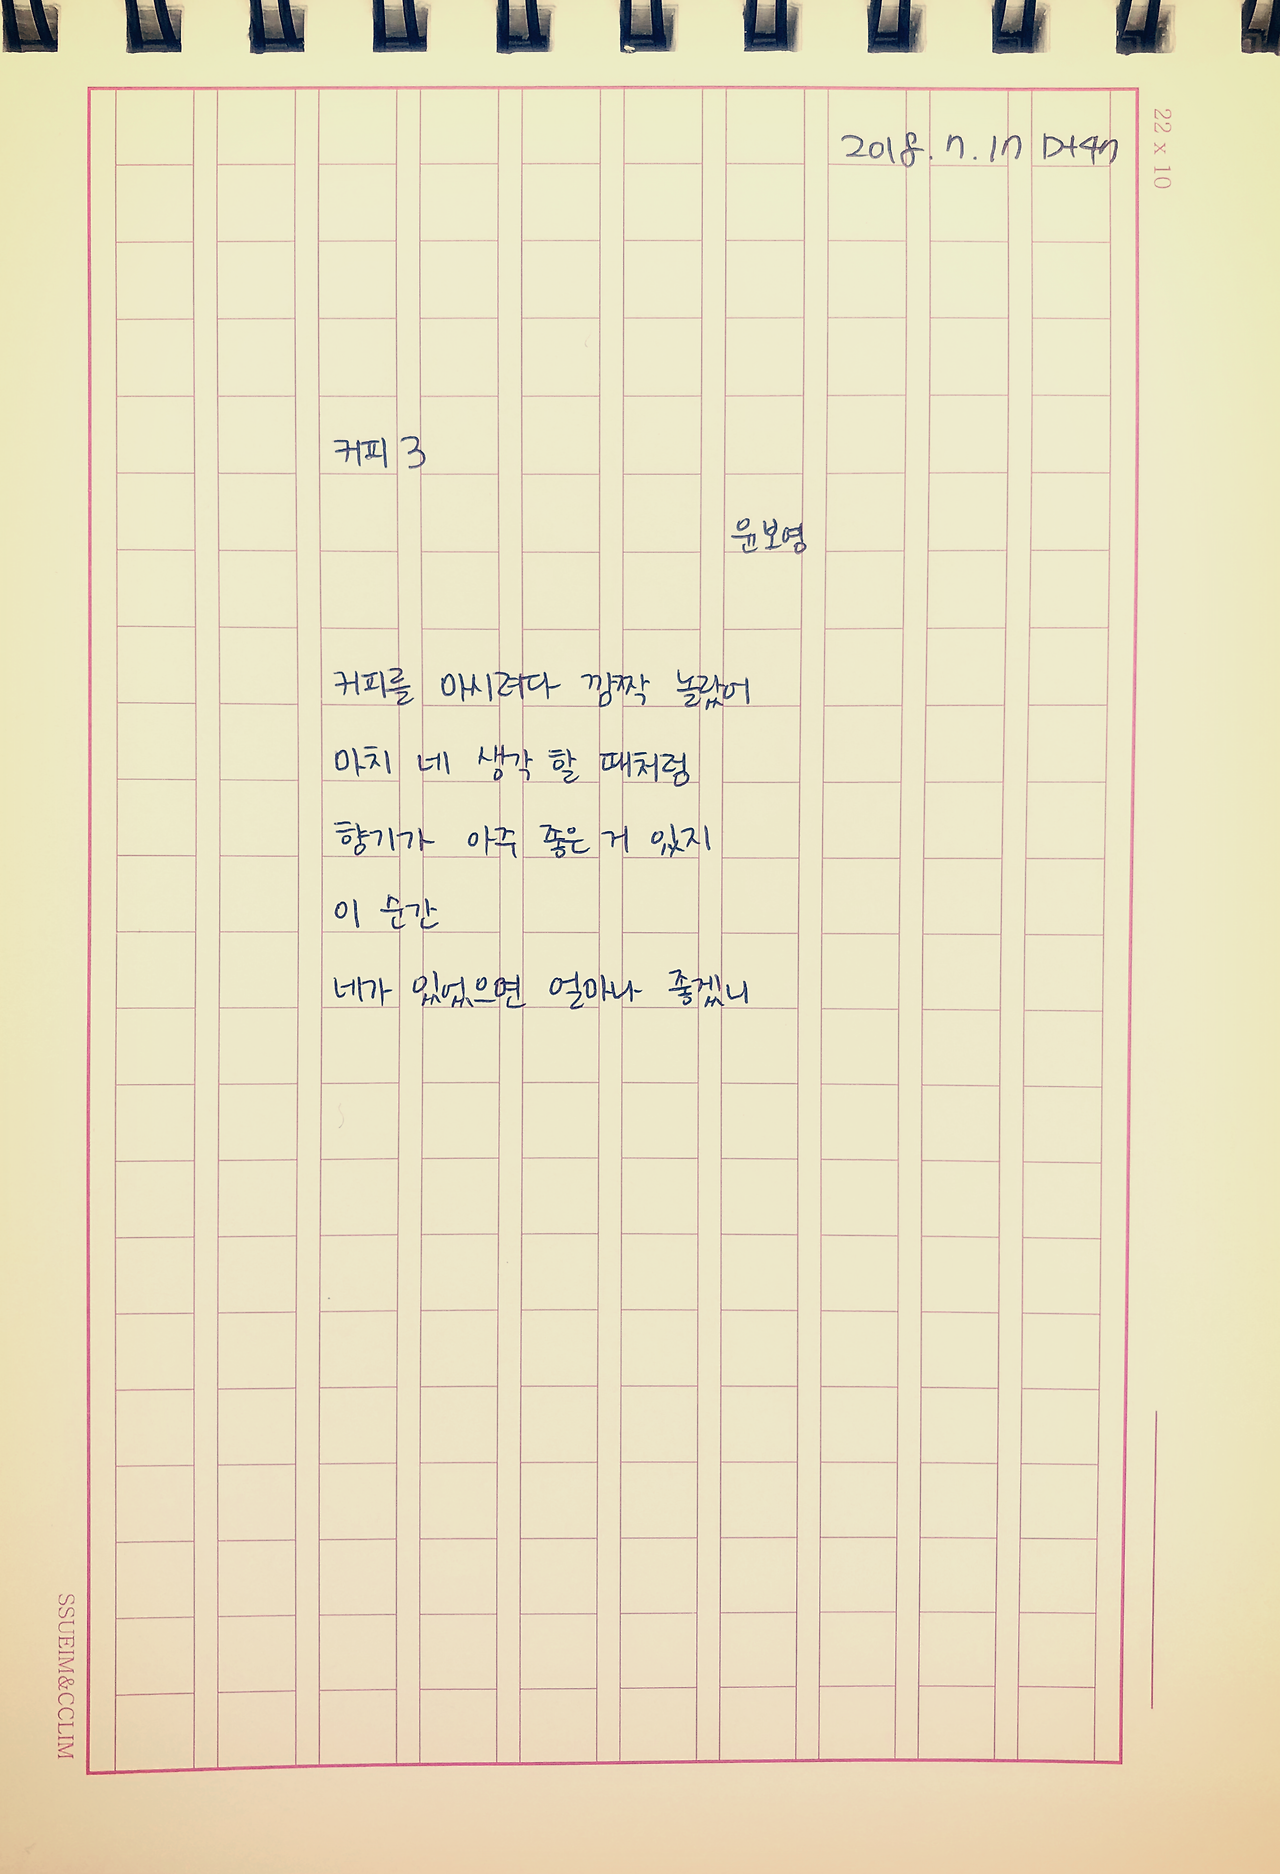 2018.7.17 D+47
22 x 10
커피 3
윤보영
커피를 마시려다 깜짝 놀랐어
마치 네 생각 할 때처럼
향기가 아주 좋은 거 있지
이 순간
네가 있었으면 얼마나 좋겠니
SSUEIM&CCLIM